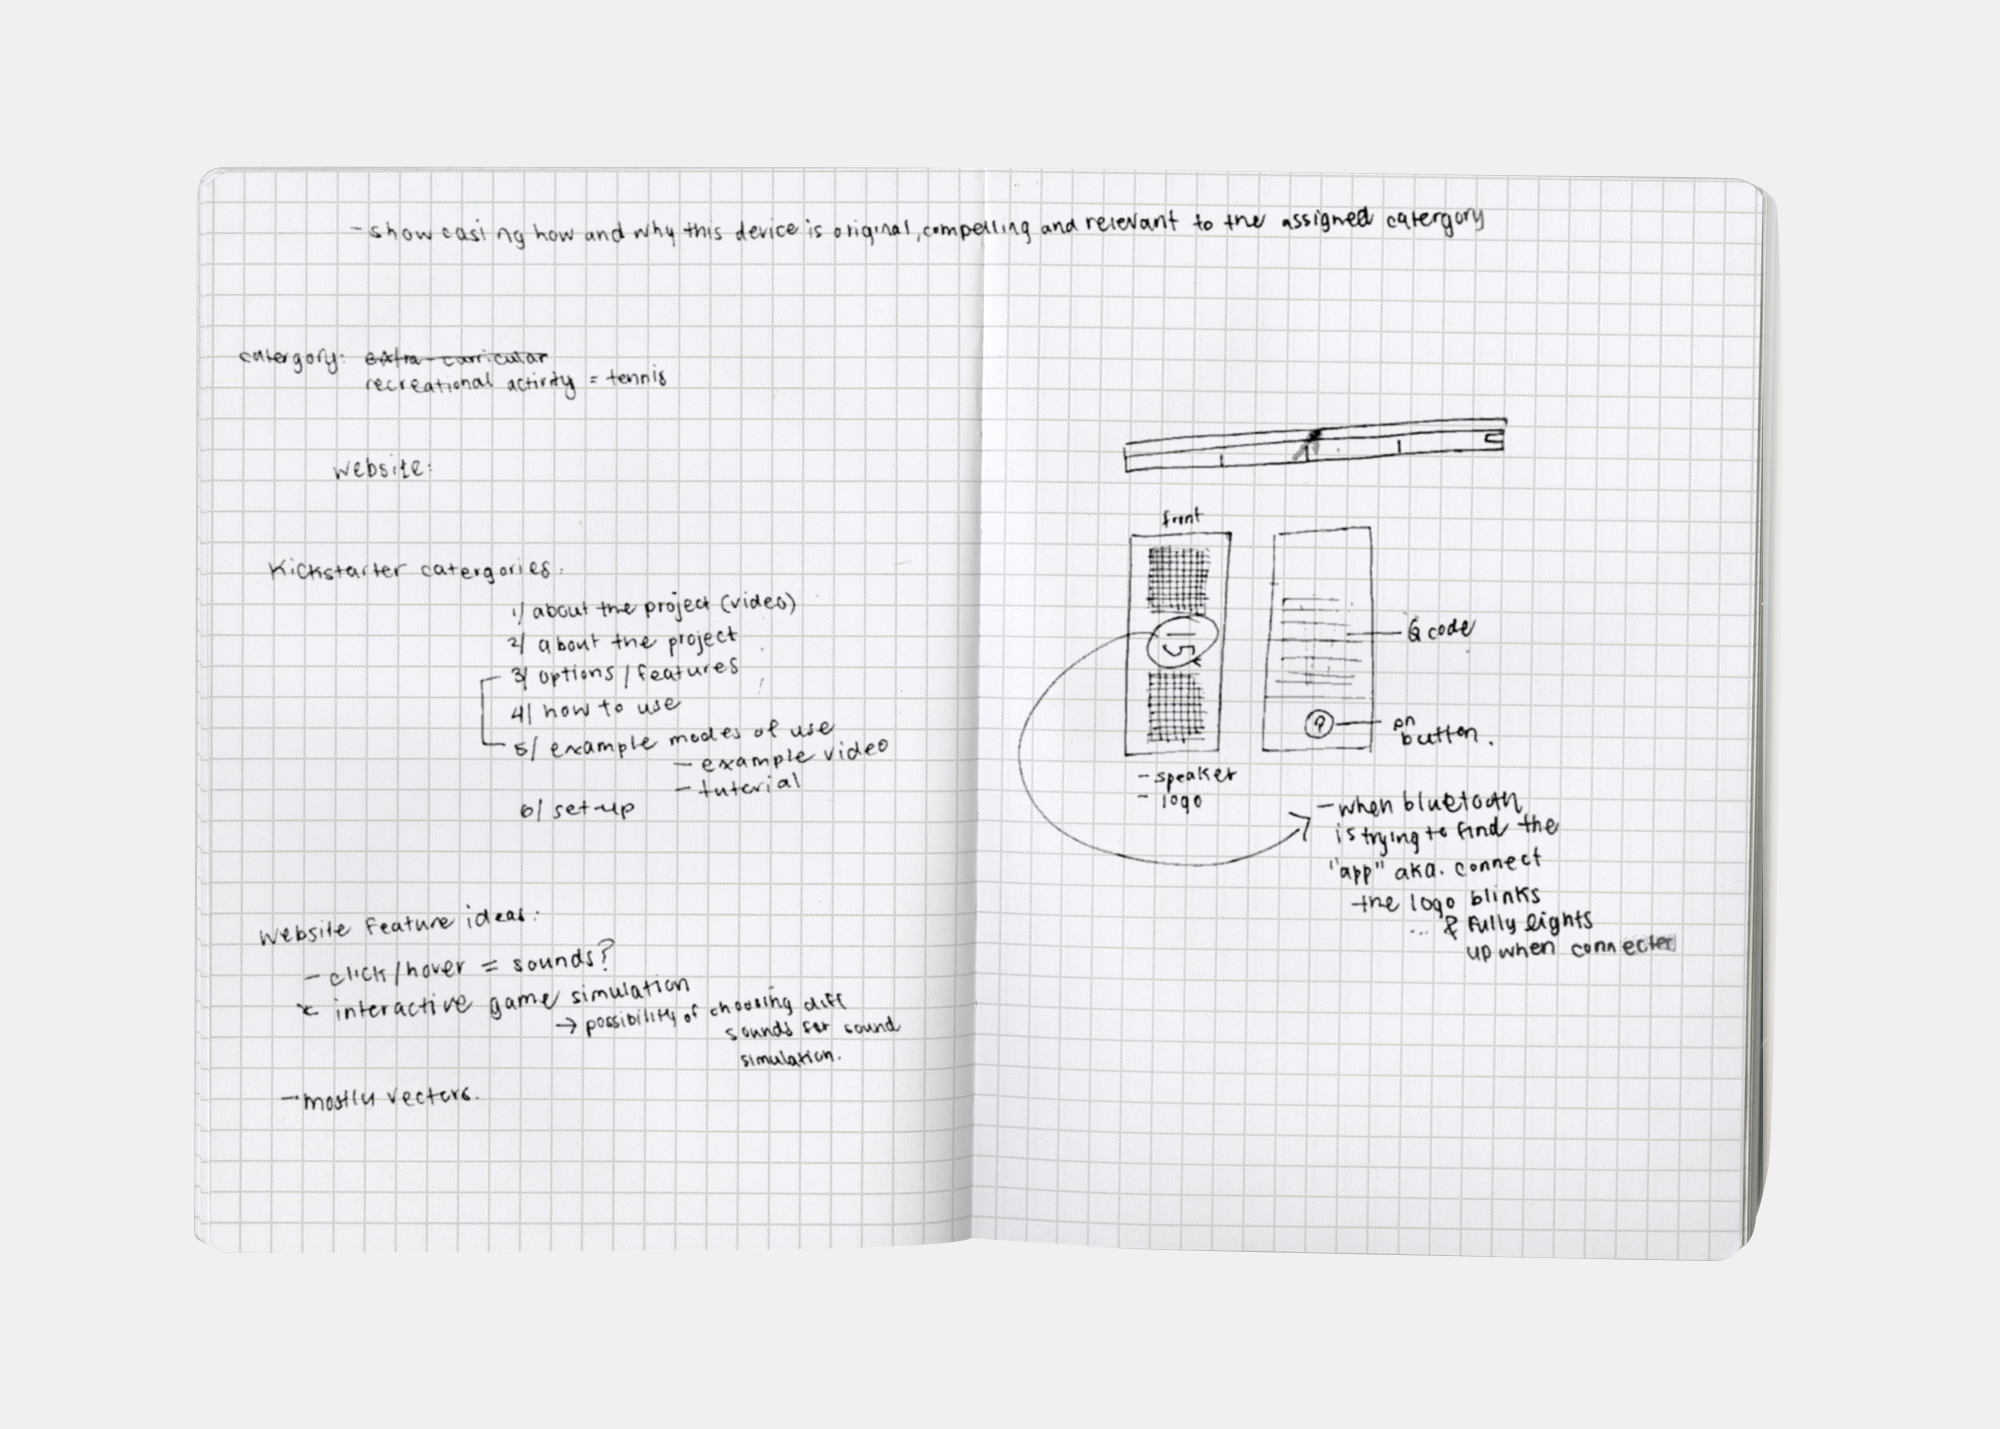 - showcasing how and why this device is original, compelling and relevant to the assigned catergory
catergory: extra-curricular
recreational activity = tennis
website:
Kickstarter catergories:
1/ about the project (video)
2/ about the project
3/ options / features
4/ how to use
5/ example modes of use
- example video
- tutorial
6/ set-up
Website feature ideas:
- click/hover = sounds?
* interactive game simulation
→ possibility of choosing diff
sounds for sound
simulation.
- mostly vectors.
front
15
- speaker
- logo
Q code
on
button.
- when bluetooth
is trying to find the
"app" aka. connect
the logo blinks
... & fully lights
up when connected